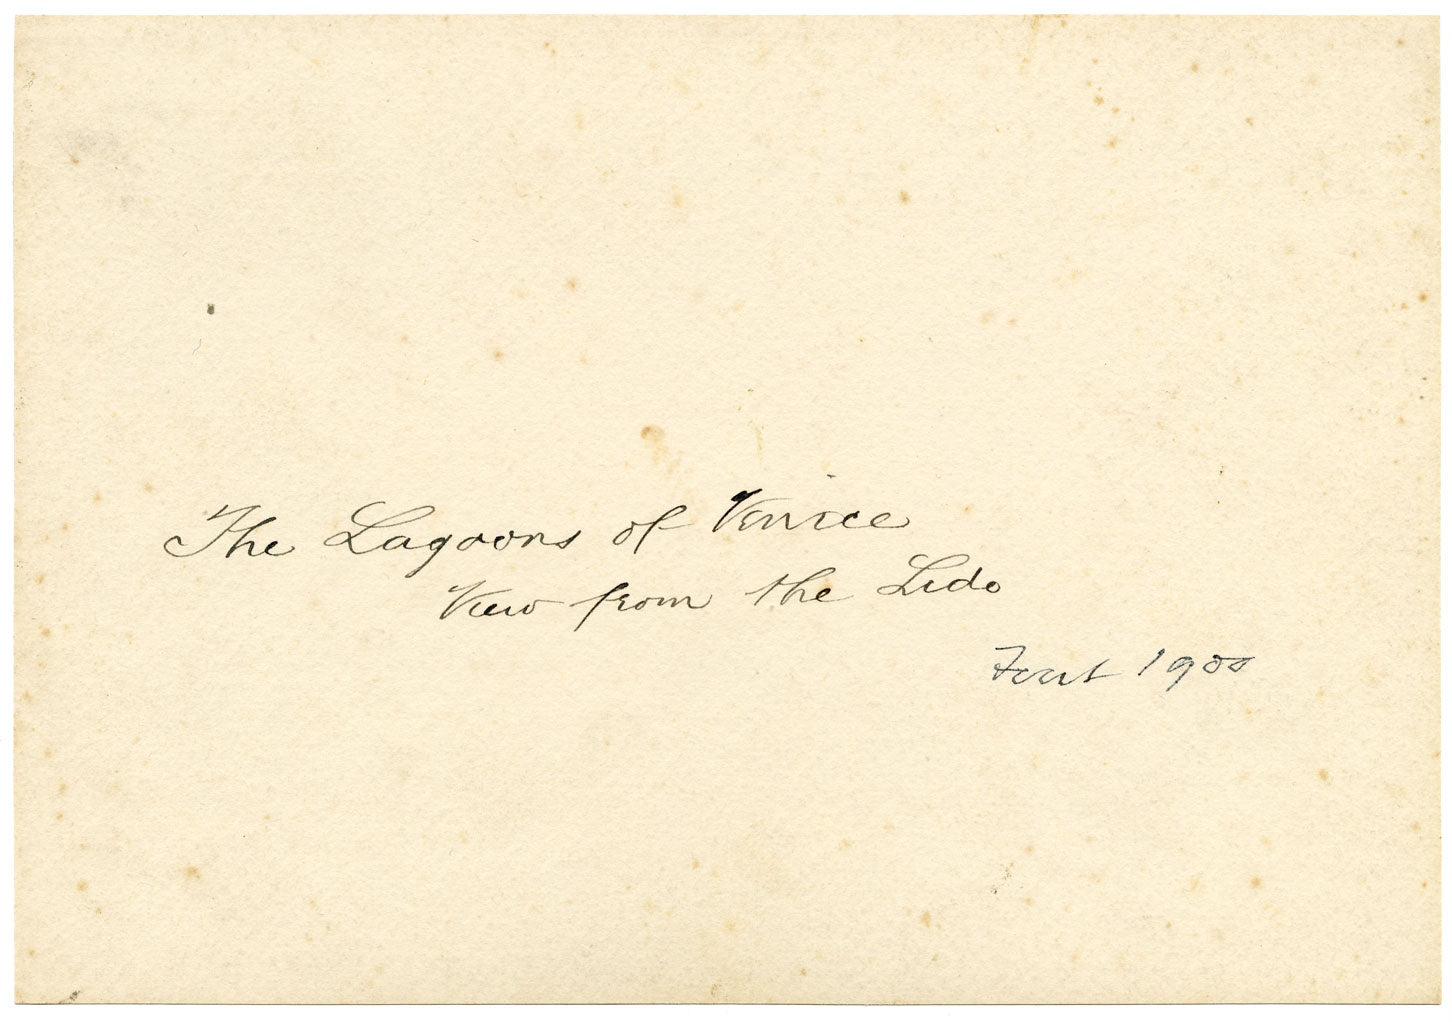 The Lagoons of Venice
View from the Lido
1900